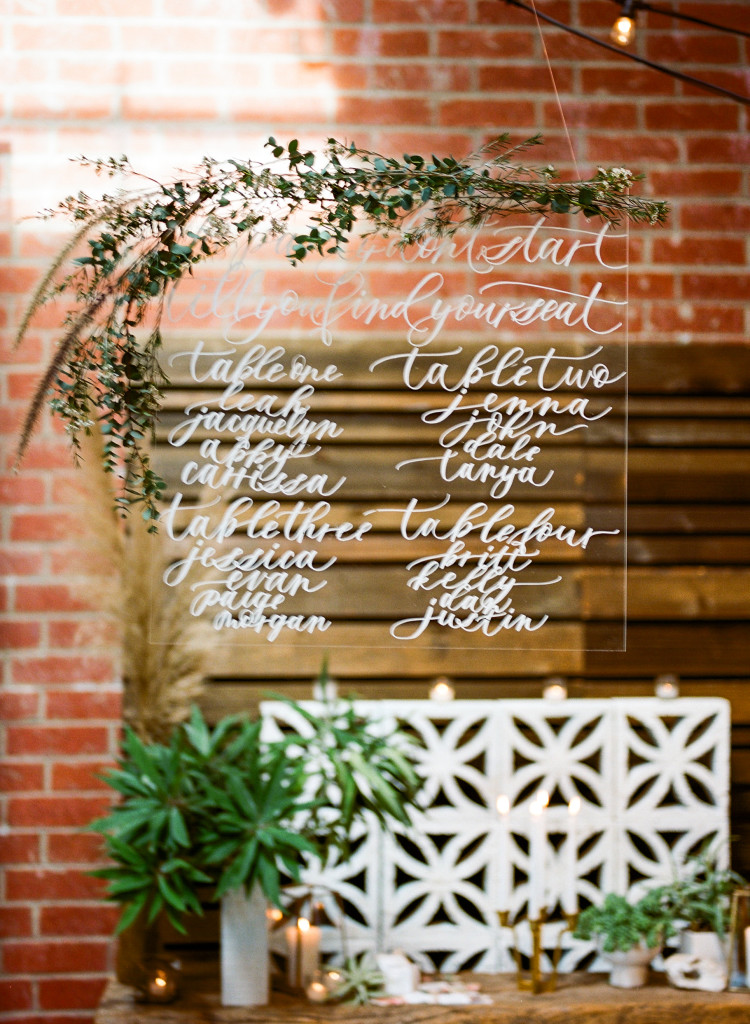 don't start
till you find your seat
table one
leah
jacquelyn
abby
carrissa
table two
jenna
john
dale
tanya
table three
jessica
evan
paige
morgan
table four
britt
kelly
dan
justin